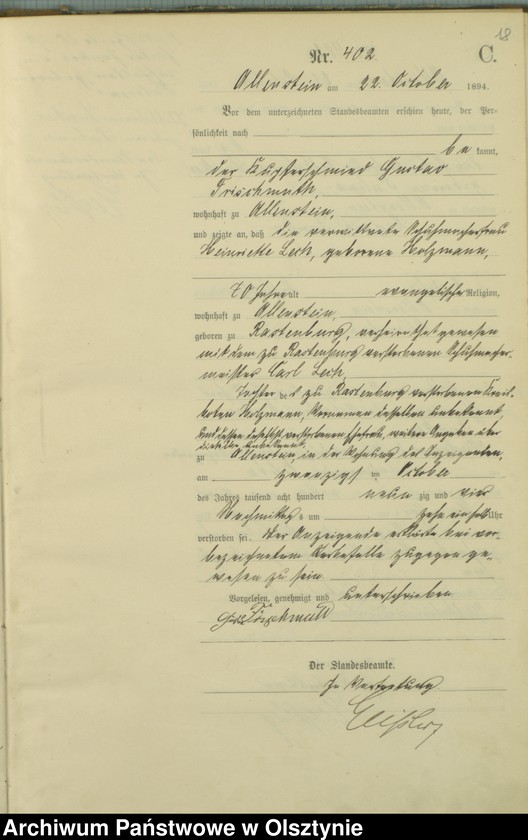 18
Nr. 402 C.
Allenstein am 22. October 1894.
Vor dem unterzeichneten Standesbeamten erschien heute, der Per-
sönlichkeit nach
be kannt,
der Kupferschmied Gustav
Frischmuth,
wohnhaft zu Allenstein,
und zeigte an, daß die verwittwete Schuhmacherfrau
Heinriette Lech, geborene Holzmann,
70 Jahre alt evangelischer Religion,
wohnhaft zu Allenstein,
geboren zu Rastenburg, verheirathet gewesen
mit dem zu Rastenburg verstorbenen Schuhmacher-
meister Carl Lech,
Tochter des zu Rastenburg verstorbenen
boten Holzmann, Vornamen desselben unbekannt,
und dessen daselbst verstorbenen Ehefrau, weitere Angaben über
dieselben unbekannt,
zu Allenstein, in der Wohnung des Anzeigenden,
am zwanzigsten October
des Jahres tausend acht hundert neun zig und vier
Nachmittags um zehn einhalb Uhr
verstorben sei. Der Anzeigende erklärte bei vor-
bezeichnetem Sterbefalle zugegen ge-
wesen zu sein.
Vorgelesen, genehmigt und unterschrieben
Frischmuth
Der Standesbeamte.
In Vertretung
Archiwum Państwowe w Olsztynie